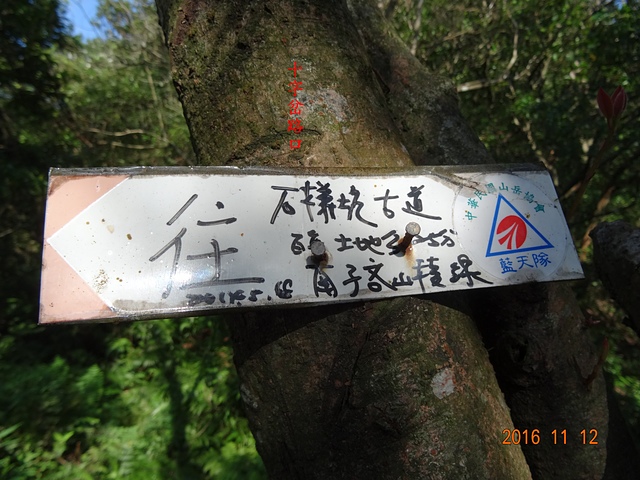 十字岔路口
往
石樣坑古道
土地公 20分
南子吝山稜線
2014.5.
中華民國山岳協會
藍天隊
2016 11 12